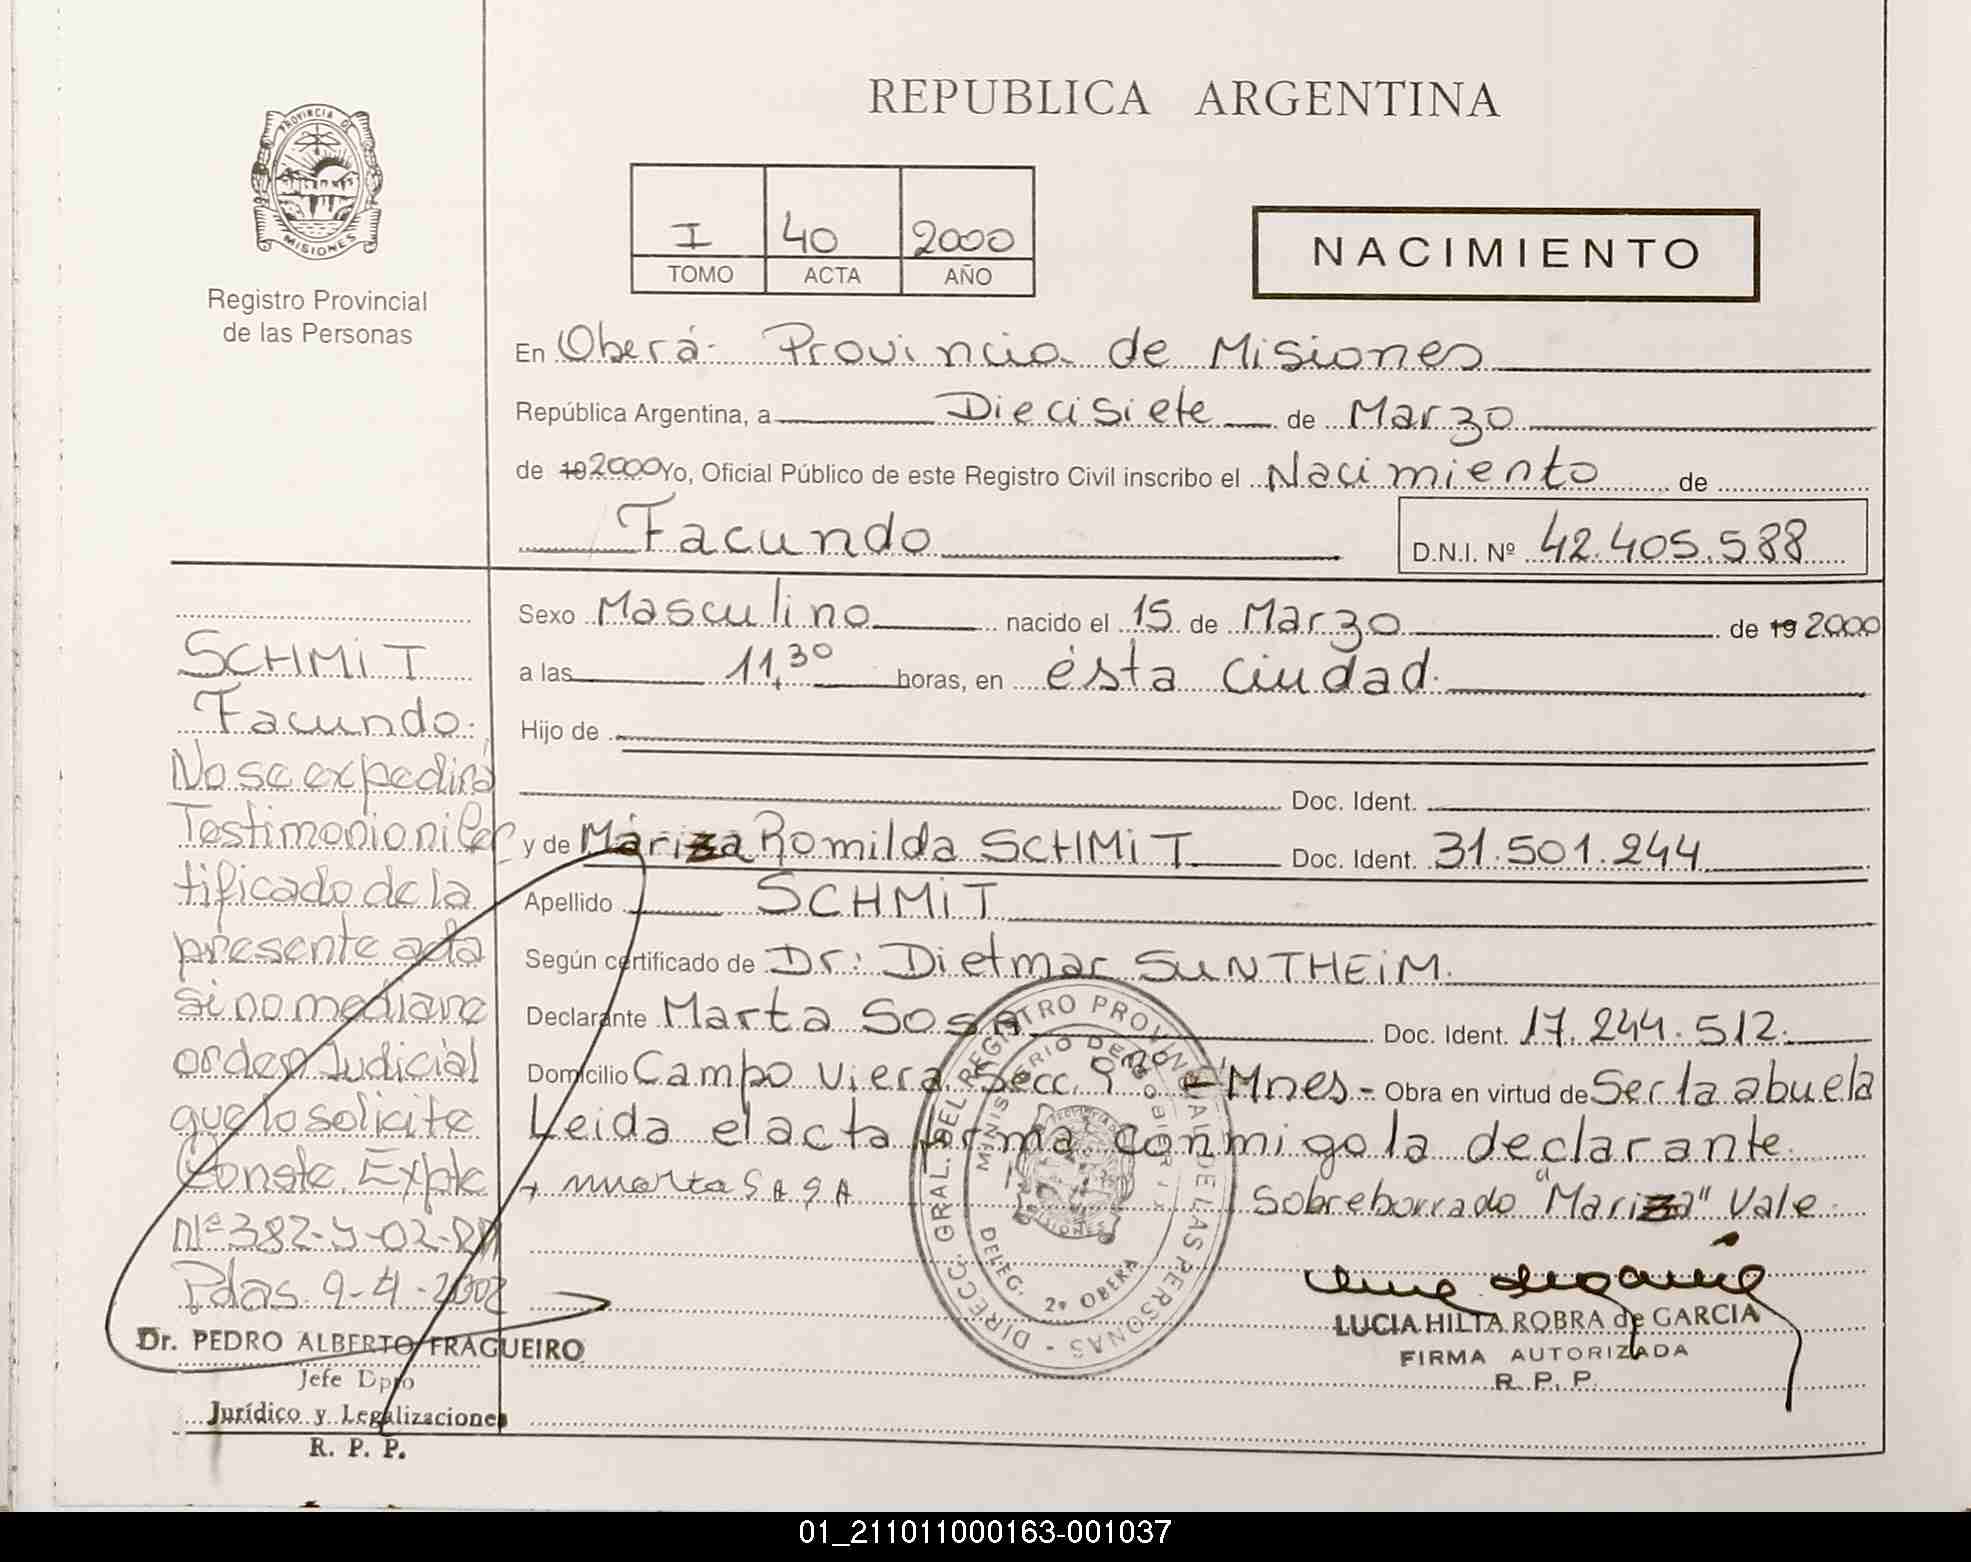 PROVINCIA DE
MISIONES
Registro Provincial
de las Personas
REPUBLICA ARGENTINA
I 40 2000
TOMO ACTA AÑO
NACIMIENTO
En Oberá- Provincia de Misiones
República Argentina, a Diecisiete de Marzo
de 19 2000 Yo, Oficial Público de este Registro Civil inscribo el Nacimiento de
Facundo
D.N.I. Nº 42.405.588
Sexo Masculino nacido el 15 de Marzo de 19 2000
a las 11,30 horas, en ésta ciudad.
Hijo de
Doc. Ident.
y de Mariza Romilda SCHMiT Doc. Ident. 31.501.244
Apellido SCHMiT
Según certificado de Dr: Dietmar SUNTHEiM.
Declarante Marta Sosa Doc. Ident. 17.244.512.
Domicilio Campo Viera Secc. 9na - Mnes- Obra en virtud de Ser la abuela
Leida el acta firma conmigo la declarante
marta SASA
Sobreborrado "Mariza" Vale.
LUCIA HILTA ROBRA de GARCIA
FIRMA AUTORIZADA
R. P. P.
DIRECC. GRAL. DEL REGISTRO PROVINCIAL DE LAS PERSONAS -
MINISTERIO DE GOBIERNO
DELEG. 2º OBERA
SCHMiT
Facundo.
No se expedirá
Testimonio ni Cer
tificado de la
presente acta
sino mediante
orden Judicial
que lo solicite
Conste. Expte
Nº 382-Y-02-
Pdas. 9-4-2002
Dr. PEDRO ALBERTO FRAGUEIRO
Jefe Dpto
Jurídico y Legalizaciones
R. P. P.
01_211011000163-001037